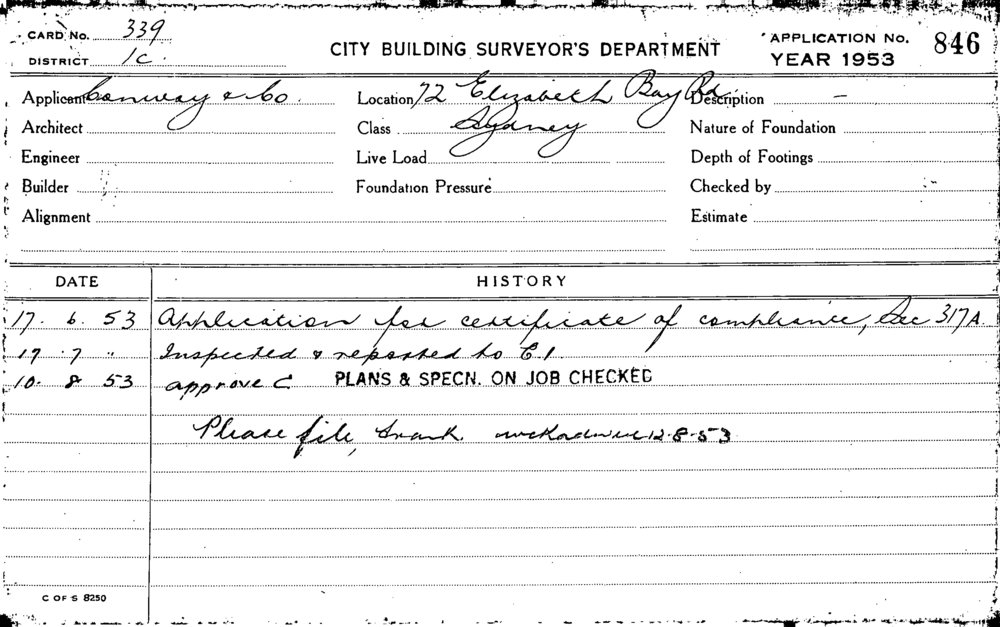 CARD No. 339
DISTRICT 1C.
CITY BUILDING SURVEYOR'S DEPARTMENT
APPLICATION No. 846
YEAR 1953
Applicant Conway & Co.
Location 72 Elizabeth Bay Rd.
Description –
Architect
Class Sydney
Nature of Foundation
Engineer
Live Load
Depth of Footings
Builder
Foundation Pressure
Checked by
Alignment
Estimate
DATE HISTORY
17. 6. 53 Application for certificate of compliance, Sec 317A
17 . 7 " Inspected & reported to C.I.
10. 8 53 approve C PLANS & SPECN. ON JOB CHECKED
Please file, 12-8-53
C OF S 8250